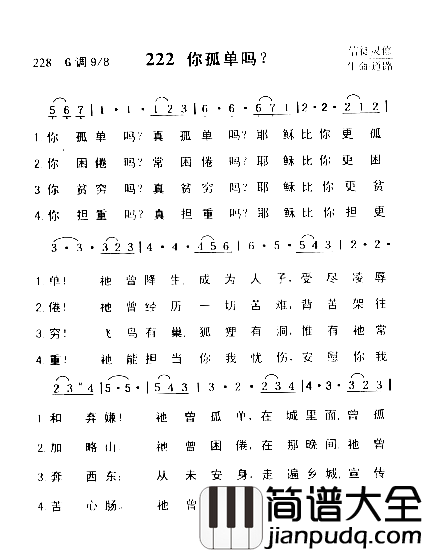 228 G调9/8 222 你孤单吗? 信徒灵修
生命道路
5 6 7 | 1· 1· 1 2 3 | 1· 6· 5 1 2 | 3· 3· 2 1 2
1 你 孤 单 吗? 真 孤 单 吗? 耶 稣 比 你 更 孤
2 你 困 倦 吗? 常 困 倦 吗? 耶 稣 比 你 更 困
3 你 贫 穷 吗? 真 贫 穷 吗? 耶 稣 比 你 更 贫
4. 你 担 重 吗? 真 担 重 吗? 耶 稣 比 你 担 更
3· 3· 3 2 3 | 4· 4· 4 5 6 | 5· 3· 5 4 3 | 2· 2·
1 单! 祂 曾 降 生, 成 为 人 子, 受 尽 凌 辱
2 倦! 祂 曾 经 历 一 切 苦 难, 背 苦 架 往
3 穷! 飞 鸟 有 巢, 狐 狸 有 洞, 惟 有 祂 常
4 重! 祂 能 担 当 你 我 忧 伤, 安 慰 你 我
1 和 弃 嫌! 祂 曾 孤 单, 在 城 里 面, 曾 孤
2. 加 略 山 祂 曾 困 倦, 在 那 晚 间, 祂 曾
3 奔 西 东; 从 未 安 身, 走 遍 乡 城, 宣 传
4 苦 心 肠。 祂 曾
简谱大全
www.jianpudq.com